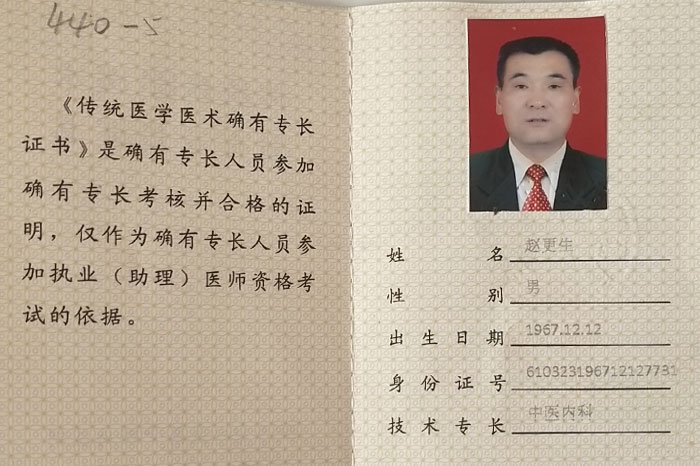 440-5
《传统医学医术确有专长
证书》是确有专长人员参加
确有专长考核并合格的证
明，仅作为确有专长人员参
加执业（助理）医师资格考
试的依据。
姓名 赵更生
性别 男
出生日期 1967.12.12
身份证号 610323196712127731
技术专长 中医内科